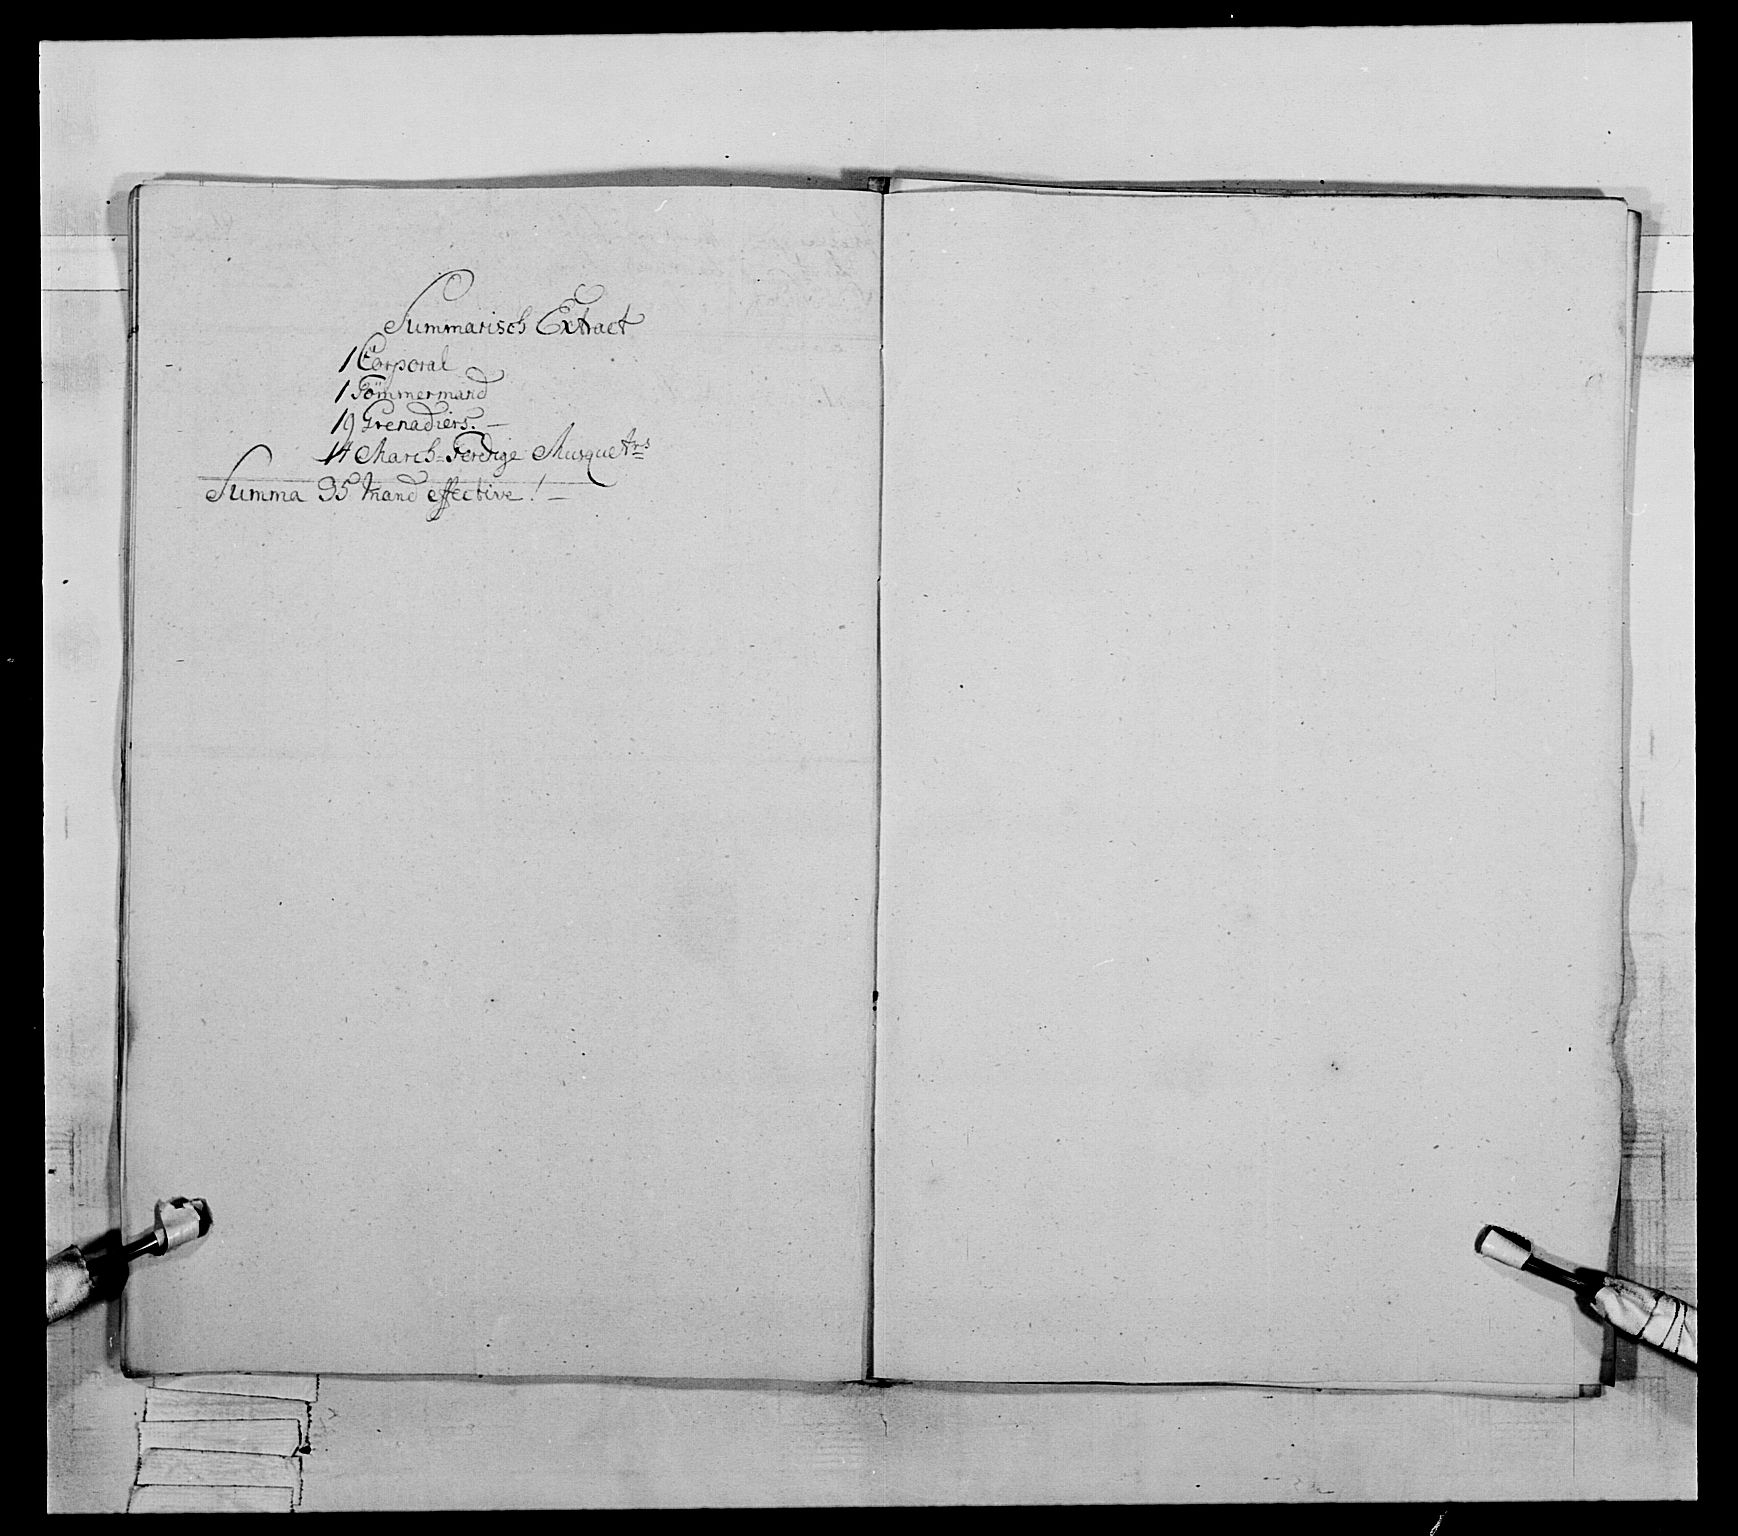 Summarisch Extract
1 Corporal
1 Tömmermand
19 Grenadiers. —
14 March-Ferdige Musquetrs
Summa 35 Mand effective! —